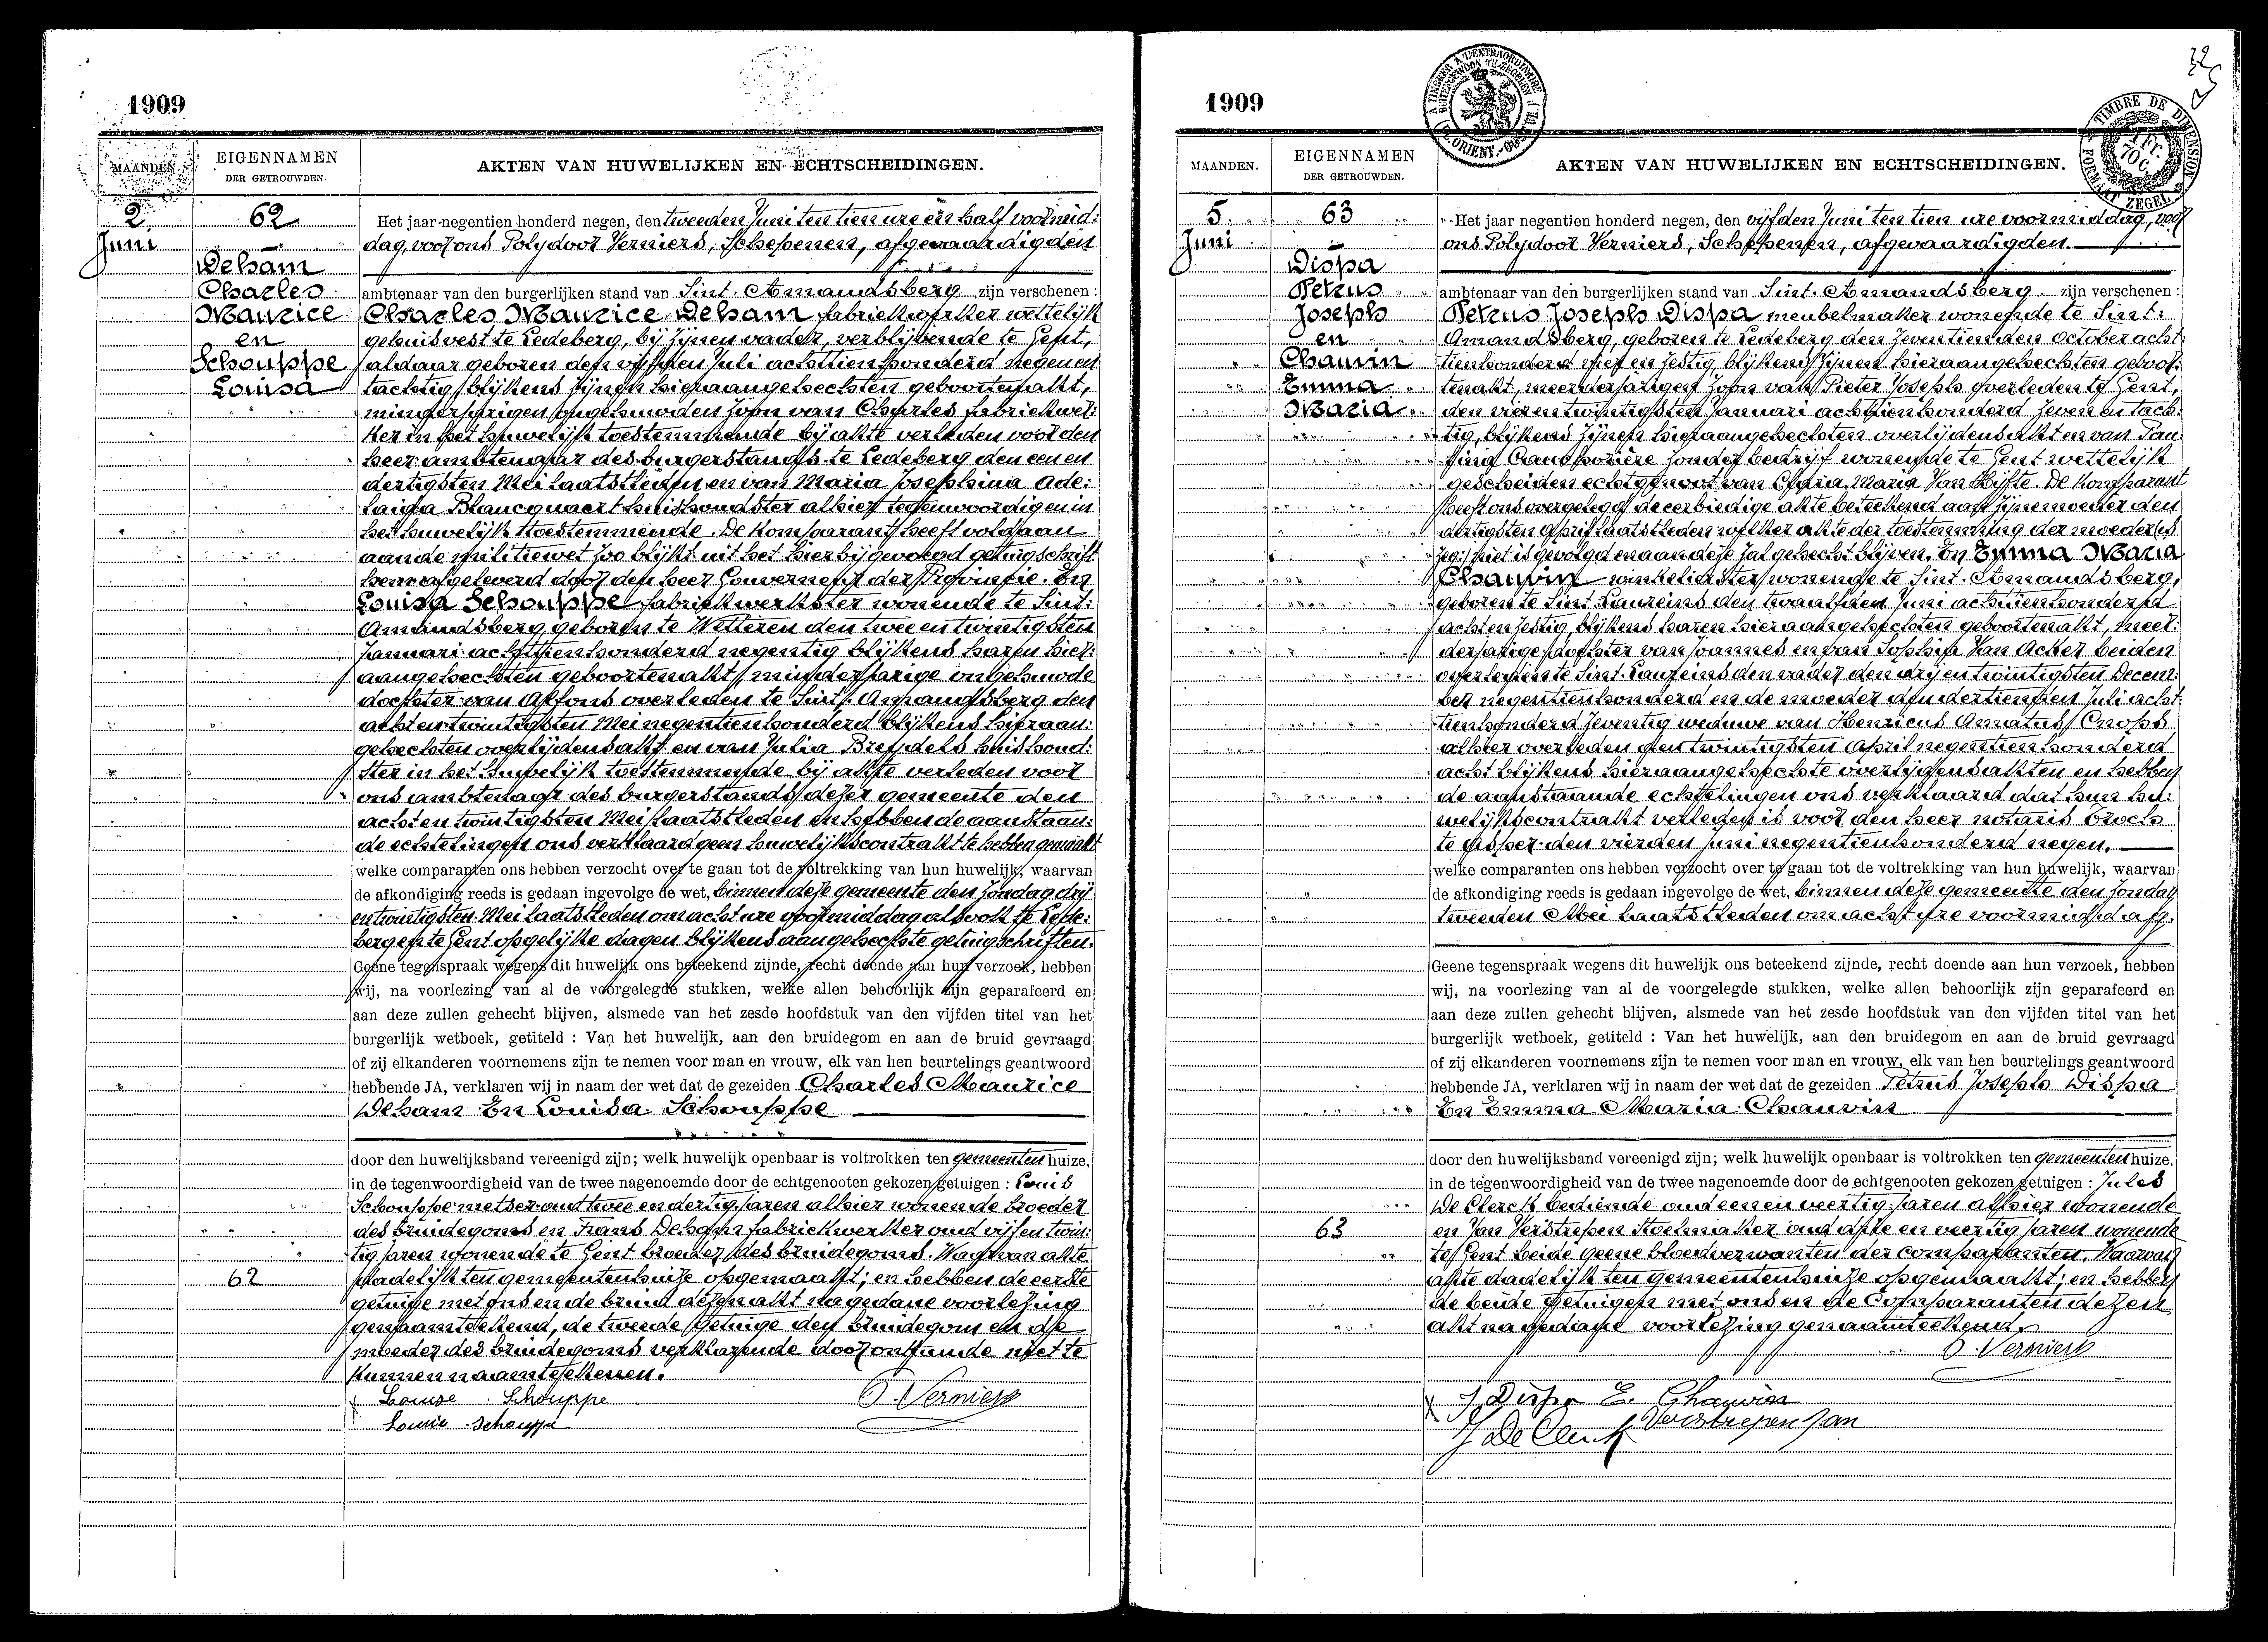 1909
MAANDEN.
EIGENNAMEN
DER GETROUWDEN
AKTEN VAN HUWELIJKEN EN ECHTSCHEIDINGEN.
2
Juni
62
Deham
Charles
Maurice
en
Schouppe
Louisa
Het jaar negentien honderd negen, den tweeden Juni ten tien ure en half voormid:
dag, voor ons Polydoor Verniers, Schepenen, afgevaardigden
ambtenaar van den burgerlijken stand van Sint. Amandsberg zijn verschenen:
Charles Maurice Deham fabriekwerker wettelijk
gehuisvest te Ledeberg, bij zijnen vader, verblijvende te Gent,
aldaar geboren den vijfden Juli achttien honderd negen en
tachtig, blijkens zijnen hieraangehechten geboorteakt,
minderjarigen ongehuwden zoon van Charles fabriekwer:
ker in het huwelijk toestemmende bij akte verleden voor den
heer ambtenaar des burgerstands te Ledeberg den een en
dertigsten Mei laatstleden en van Maria Josephina Ade:
laida Blancquaert huishoudster alhier tegenwoordig en in
het huwelijk toestemmende. De komparant heeft voldaan
aan de militiewet zoo blijkt uit het hierbijgevoegd getuigschrift
hem afgeleverd door den heer Gouverneur der Provincie. En
Louisa Schouppe fabriekwerkster wonende te Sint:
Amandsberg geboren te Wetteren den twee en twintigsten
Januari achttienhonderd negentig blijkens haren hier:
aangehechten geboorteakt, minderjarige ongehuwde
dochter van Alfons overleden te Sint. Amandsberg den
acht en twintigsten Mei negentienhonderd blijkens hieraan:
gehechten overlijdensakt en van Julia Breydels huishoud:
ster in het huwelijk toestemmende bij akte verleden voor
ons ambtenaar des burgerstands dezer gemeente den
acht en twintigsten Mei laatstleden en hebben de aanstaan:
de echtelingen ons verklaard geen huwelijkscontrakt te hebben gemaakt
welke comparanten ons hebben verzocht over te gaan tot de voltrekking van hun huwelijk, waarvan
de afkondiging reeds is gedaan ingevolge de wet, binnen deze gemeente den zondag drij
en twintigsten Mei laatstleden om acht ure voormiddag alsook te Lede:
berg en te Gent op gelijke dagen blijkens aangehechte getuigschriften.
Geene tegenspraak wegens dit huwelijk ons beteekend zijnde, recht doende aan hun verzoek, hebben
wij, na voorlezing van al de voorgelegde stukken, welke allen behoorlijk zijn geparafeerd en
aan deze zullen gehecht blijven, alsmede van het zesde hoofdstuk van den vijfden titel van het
burgerlijk wetboek, getiteld : Van het huwelijk, aan den bruidegom en aan de bruid gevraagd
of zij elkanderen voornemens zijn te nemen voor man en vrouw, elk van hen beurtelings geantwoord
hebbende JA, verklaren wij in naam der wet dat de gezeiden Charles Maurice
Deham En Louisa Schouppe
door den huwelijksband vereenigd zijn; welk huwelijk openbaar is voltrokken ten gemeenten huize,
in de tegenwoordigheid van de twee nagenoemde door de echtgenooten gekozen getuigen : Louis
Schouppe metser oud twee en dertig jaren alhier wonende broeder
des bruidegoms en Frans Deham fabriekwerker oud vijf en twin:
tig jaren wonende te Gent broeder des bruidegoms. Waarvan akte
62
dadelijk ten gemeentenhuize opgemaakt; en hebben de eerste
getuige met ons en de bruid dezen akt na gedane voorlezing
genaamteekend, de tweede getuige den bruidegom en de
moeder des bruidegoms verklarende door onkunde niet te
kunnen naamteekenen.
Louise Schouppe
P. Verniers
Louis Schouppe
1909
MAANDEN.
EIGENNAMEN
DER GETROUWDEN.
AKTEN VAN HUWELIJKEN EN ECHTSCHEIDINGEN.
TIMBRE DE DIMENSION
FORMAAT ZEGEL
5
Juni
63
Dispa
Petrus
Joseph
en
Chauvin
Emma
Maria
Het jaar negentien honderd negen, den vijfden Juni ten tien ure voormiddag, voor
ons Polydoor Verniers, Schepenen, afgevaardigden.
ambtenaar van den burgerlijken stand van Sint. Amandsberg zijn verschenen:
Petrus Joseph Dispa meubelmaker wonende te Sint:
Amandsberg, geboren te Ledeberg den zeventienden October acht:
tienhonderd vier en zestig, blijkens zijnen hieraangehechten geboor:
teakt, meerderjarigen zoon van Pieter Joseph overleden te Gent,
den vier en twintigsten Januari achttienhonderd zeven en tach:
tig, blijkens zijnen hieraangehechten overlijdensakt en van Pau:
lina zonder bedrijf wonende te Gent wettelijk
gescheiden echtgenoot van Clara Maria Van Hijfte. De komparant
heeft ons overgelegd de eerbiedige akte beteekend aan zijne moeder den
dertigsten April laatstleden welker akte der toestemming der moeder is
niet is gevolgd en aan deze zal gehecht blijven. En Emma Maria
Chauvin winkelierster wonende te Sint. Amandsberg,
geboren te Sint Laureins den twaalfden Juni achttienhonderd
acht en zestig, blijkens haren hieraangehechten geboorteakt, meer:
derjarige dochter van Joannes en van Sophia Van Acker beiden
overleden te Sint. Laureins den vader den drij en twintigsten Decem:
ber negentienhonderd en de moeder den dertienden Juli acht:
tienhonderd zeventig weduwe van Henricus Amatus Cnops
alhier overleden den twintigsten April negentienhonderd
acht blijkens hieraangehechte overlijdensakten en hebben
de aanstaande echtelingen ons verklaard dat hun hu:
welijkscontrakt verleden is voor den heer notaris
te Asper den vierden Juni negentienhonderd negen.
welke comparanten ons hebben verzocht over te gaan tot de voltrekking van hun huwelijk, waarvan
de afkondiging reeds is gedaan ingevolge de wet, binnen deze gemeente den zondag
tweeden Mei laatstleden om acht ure voormiddag.
Geene tegenspraak wegens dit huwelijk ons beteekend zijnde, recht doende aan hun verzoek, hebben
wij, na voorlezing van al de voorgelegde stukken, welke allen behoorlijk zijn geparafeerd en
aan deze zullen gehecht blijven, alsmede van het zesde hoofdstuk van den vijfden titel van het
burgerlijk wetboek, getiteld : Van het huwelijk, aan den bruidegom en aan de bruid gevraagd
of zij elkanderen voornemens zijn te nemen voor man en vrouw, elk van hen beurtelings geantwoord
hebbende JA, verklaren wij in naam der wet dat de gezeiden Petrus Joseph Dispa
En Emma Maria Chauvin
door den huwelijksband vereenigd zijn; welk huwelijk openbaar is voltrokken ten gemeenten huize,
in de tegenwoordigheid van de twee nagenoemde door de echtgenooten gekozen getuigen : Jules
De Clerck bediende oud een en veertig jaren alhier wonende
63
en Jan Verstrepen stoelmaker oud acht en veertig jaren wonende
te Gent beide geene bloedverwanten der comparanten. Waarvan
akte dadelijk ten gemeentenhuize opgemaakt; en hebben
de beide getuigen met ons en de Comparanten dezen
akt na gedane voorlezing genaamteekend.
P. Verniers
J Dispa E. Chauvin
Verstrepen Jan
J De Clerck